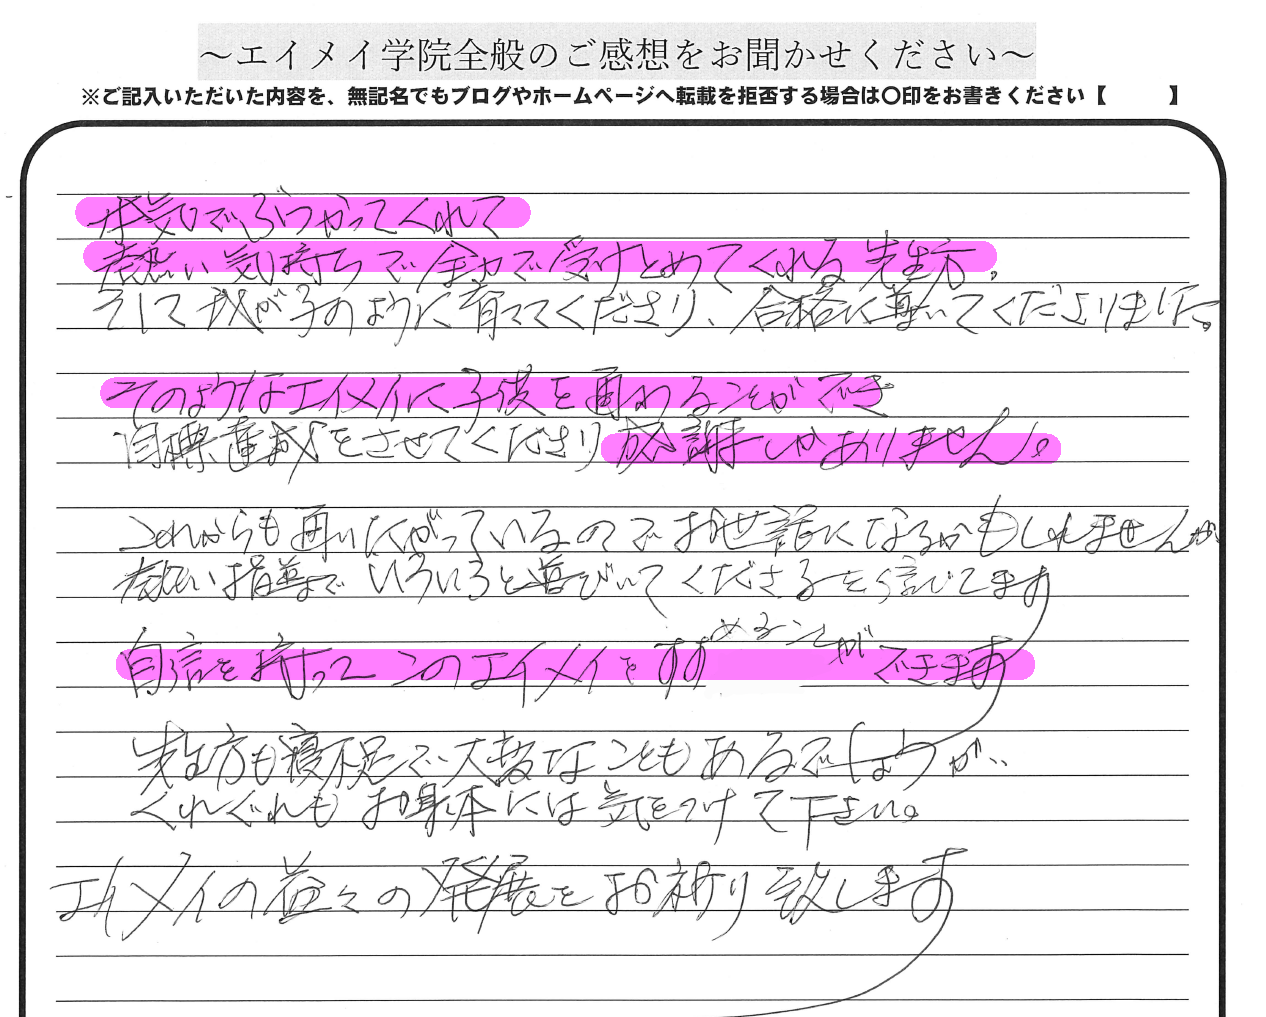 ～エイメイ学院全般のご感想をお聞かせください～
※ご記入いただいた内容を、無記名でもブログやホームページへ転載を拒否する場合は〇印をお書きください【　　　】
本気でぶつかってくれて
熱い気持ちで全力で受けとめてくれる先生方。
そして我が子のように育ててくださり、合格に導いてくださりました。
そのようなエイメイに子供を通わることができ
目標達成をさせてくださり感謝しかありません。
これからも通いたがっているのでお世話になるかもしれませんが
熱い指導でいろいろと びいてくださると信じてます
自信を持ってこのエイメイをすすめることができます
先生方も寝不足で大変なこともあるでしょうが..
くれぐれもお身体には気をつけて下さい。
エイメイの益々の発展をお祈り致します